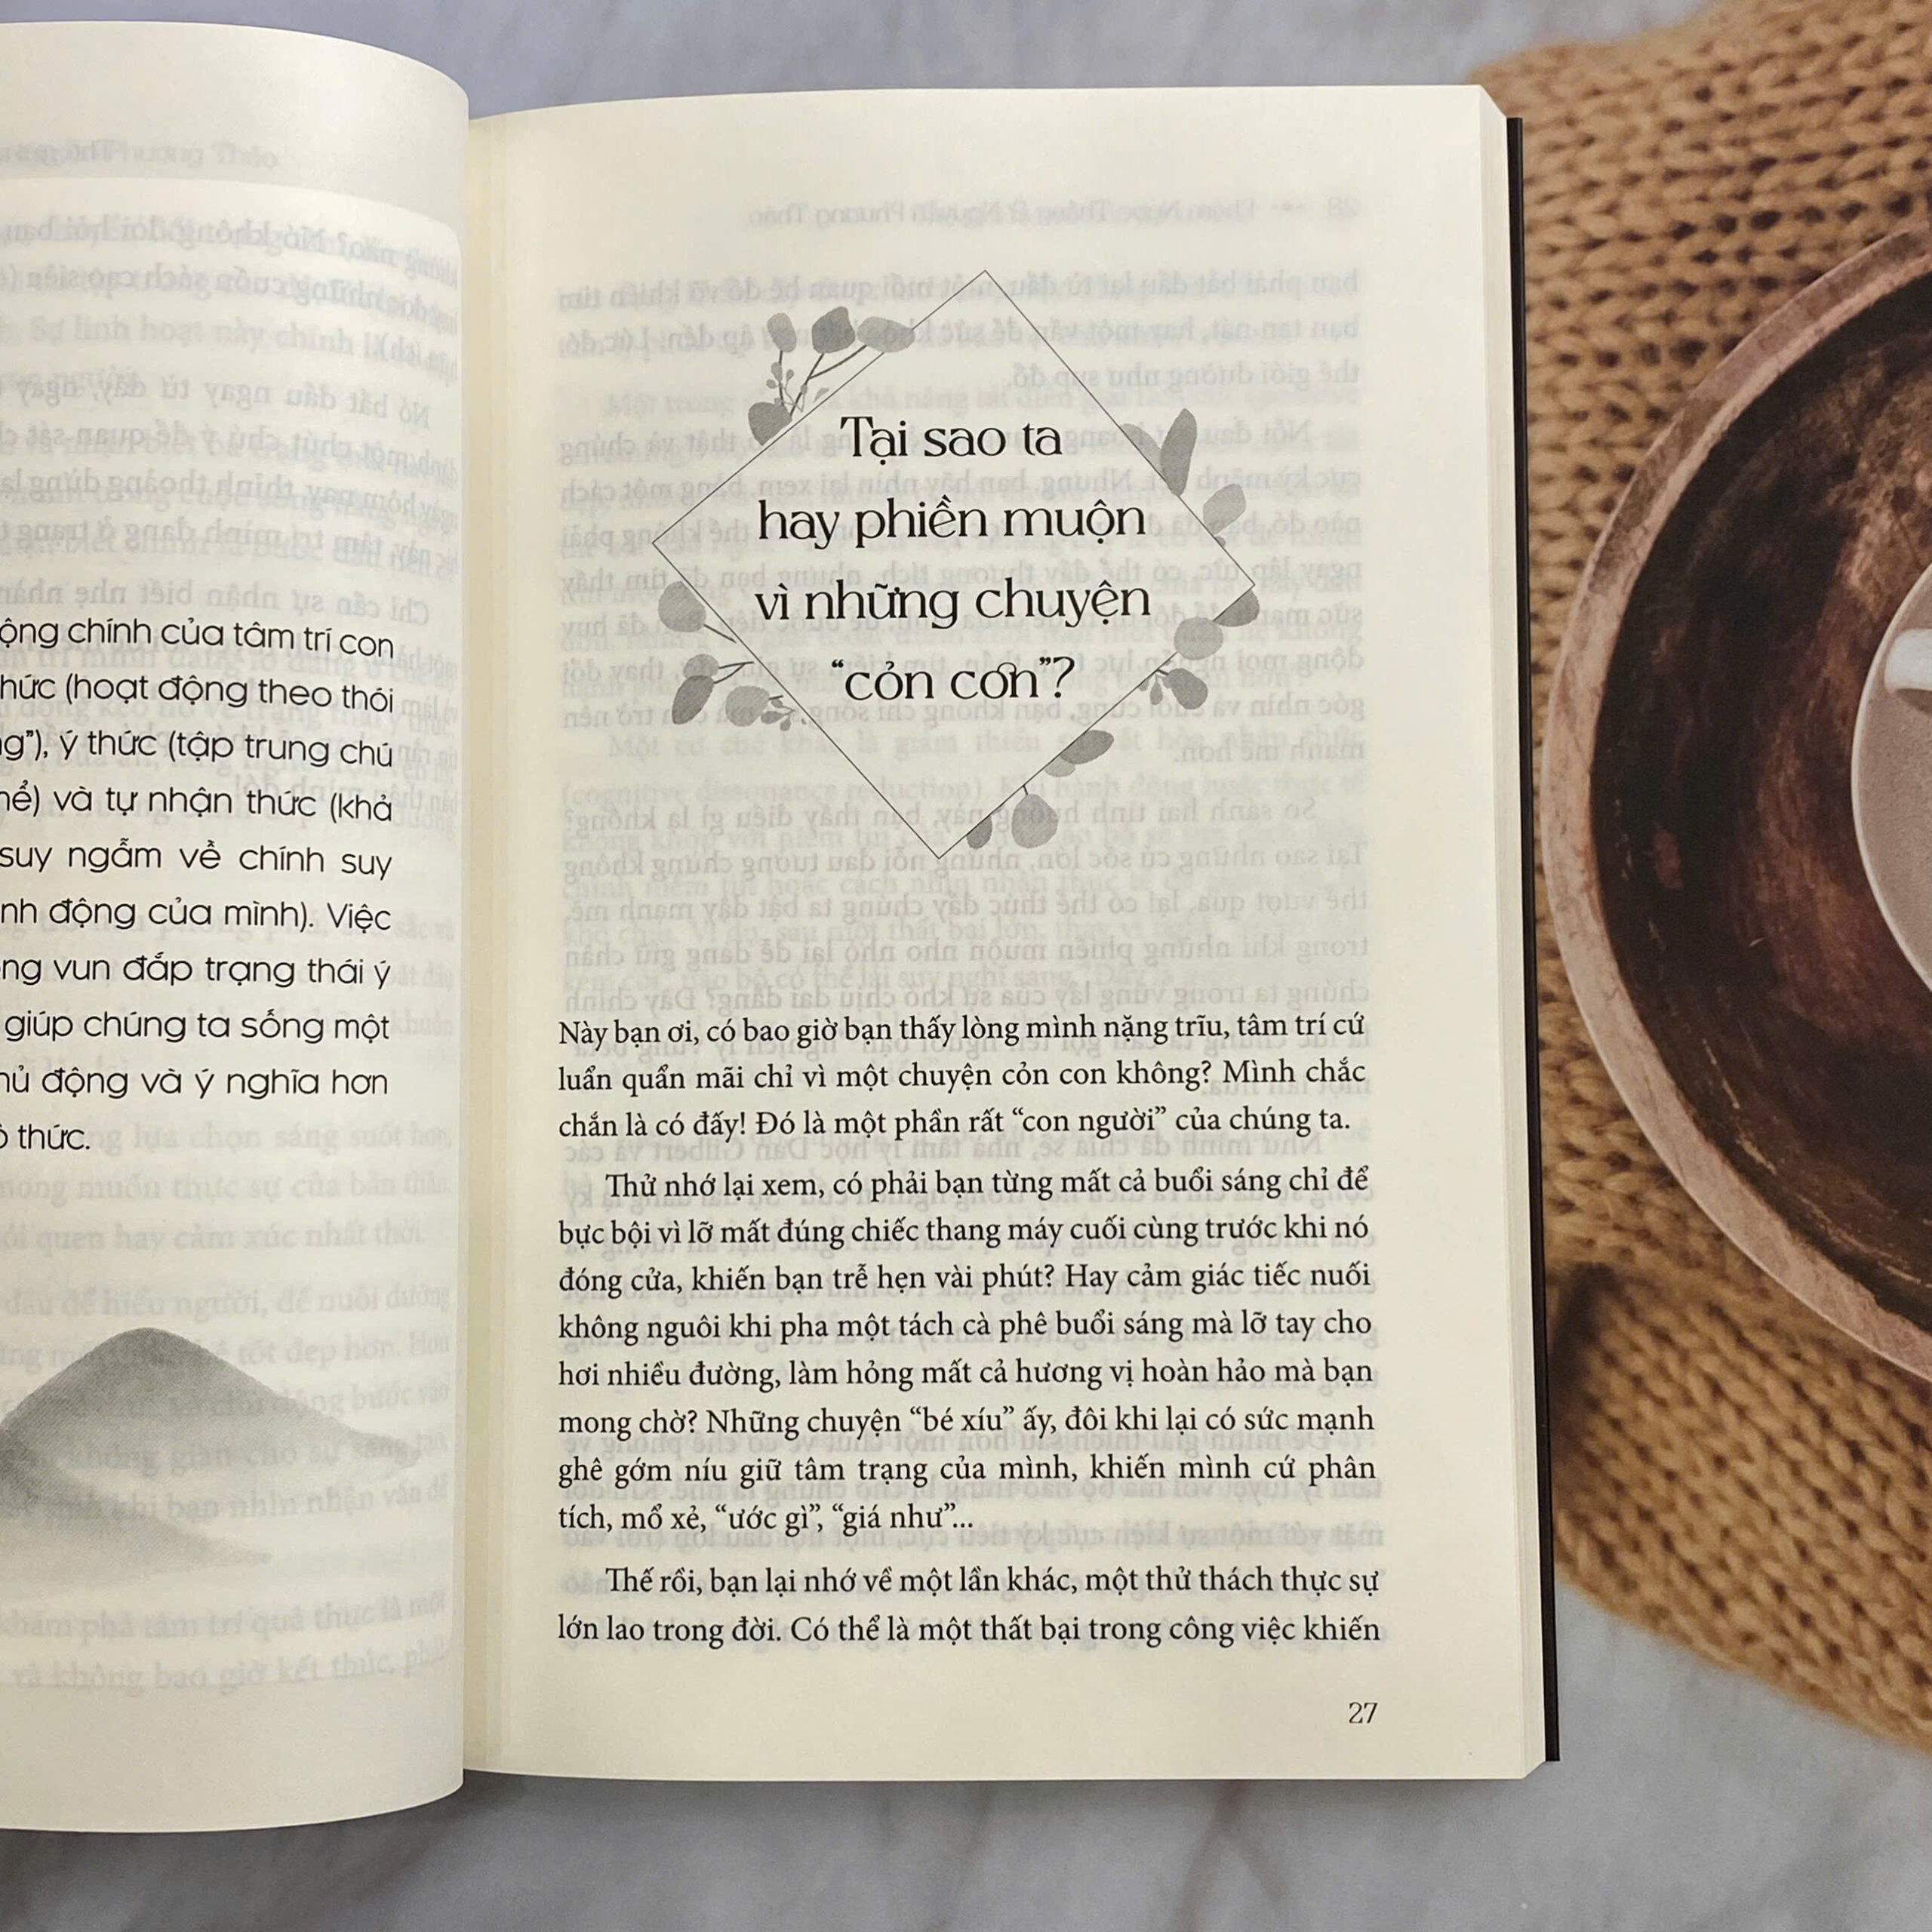 ộng chính của tâm trí con
hức (hoạt động theo thói
g”), ý thức (tập trung chú
ể) và tự nhận thức (khả
suy ngẫm về chính suy
nh động của mình). Việc
ng vun đắp trạng thái ý
giúp chúng ta sống một
hủ động và ý nghĩa hơn
ô thức.
Tại sao ta
hay phiền muộn
vì những chuyện
“cỏn con”?
Này bạn ơi, có bao giờ bạn thấy lòng mình nặng trĩu, tâm trí cứ
luẩn quẩn mãi chỉ vì một chuyện cỏn con không? Mình chắc
chắn là có đấy! Đó là một phần rất “con người” của chúng ta.
Thử nhớ lại xem, có phải bạn từng mất cả buổi sáng chỉ để
bực bội vì lỡ mất đúng chiếc thang máy cuối cùng trước khi nó
đóng cửa, khiến bạn trễ hẹn vài phút? Hay cảm giác tiếc nuối
không nguôi khi pha một tách cà phê buổi sáng mà lỡ tay cho
hơi nhiều đường, làm hỏng mất cả hương vị hoàn hảo mà bạn
mong chờ? Những chuyện “bé xíu” ấy, đôi khi lại có sức mạnh
ghê gớm níu giữ tâm trạng của mình, khiến mình cứ phân
tích, mổ xẻ, “ước gì”, “giá như”...
Thế rồi, bạn lại nhớ về một lần khác, một thử thách thực sự
lớn lao trong đời. Có thể là một thất bại trong công việc khiến
27